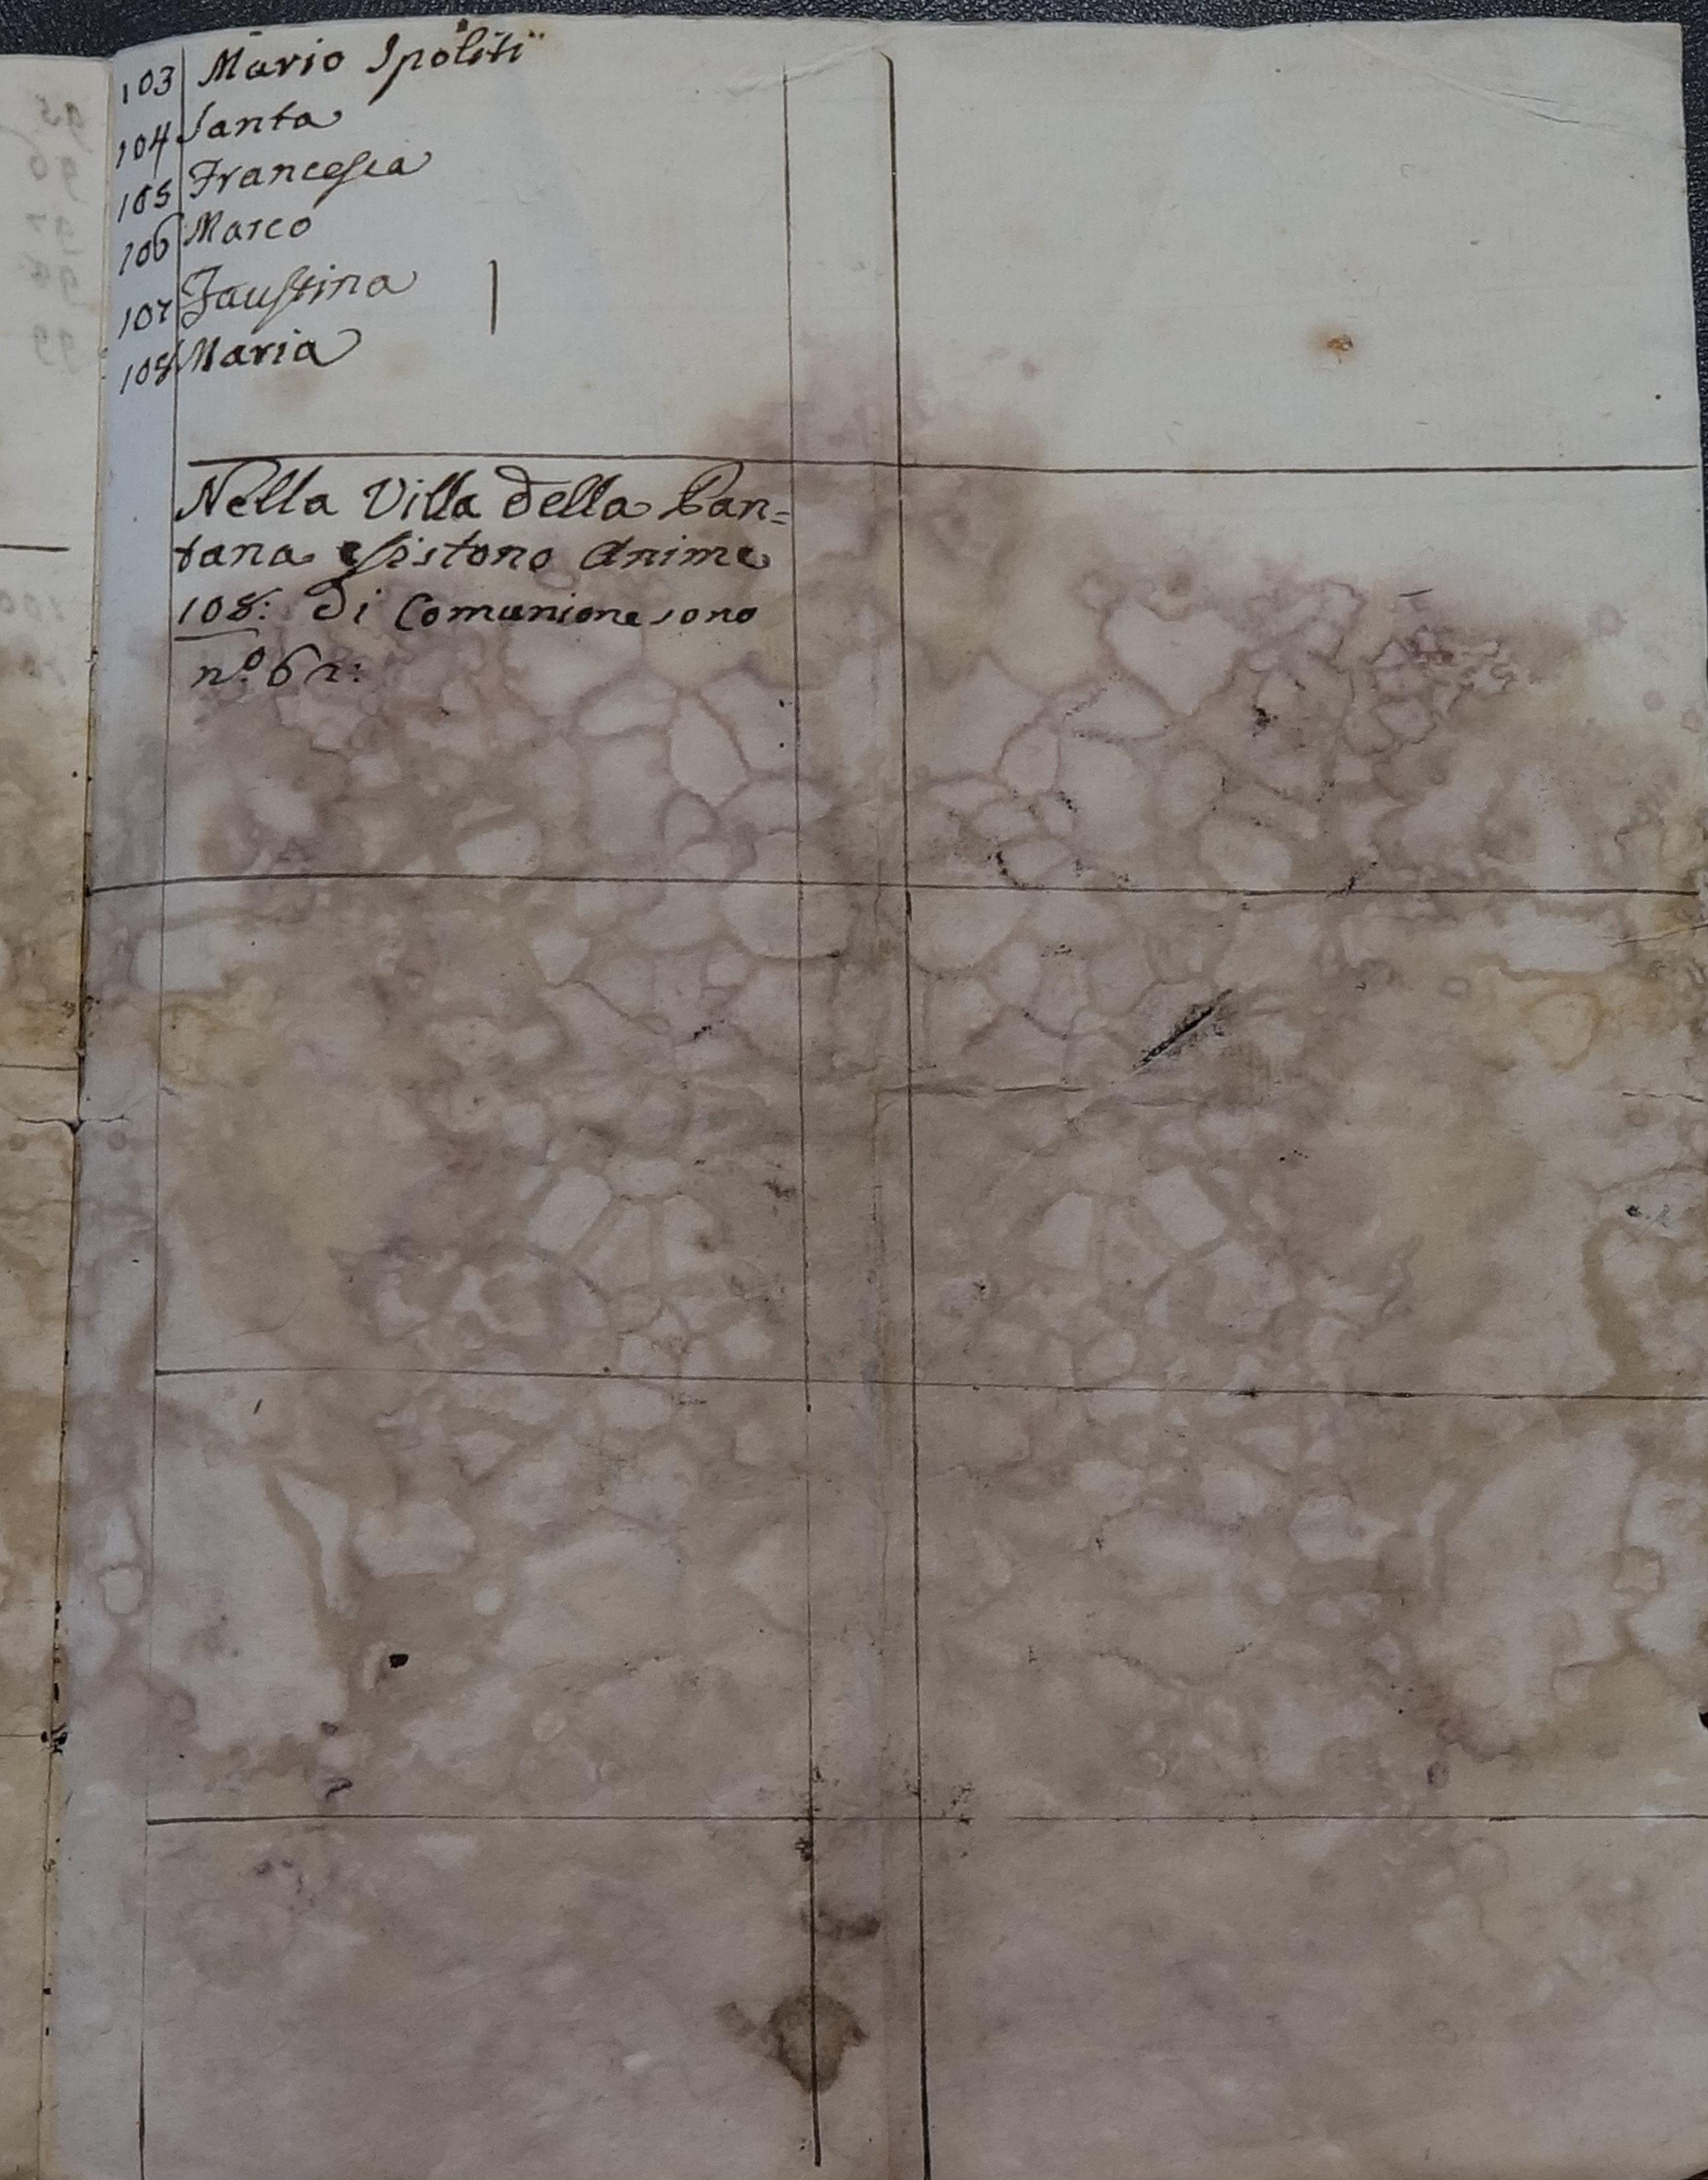 103 Mario Ipoliti
104 Santa
105 Francesca
106 Marco
107 Faustina
108 Maria
Nella Villa della Pan=
tana esistono Anime
108: di Comunione sono
n.o 62: